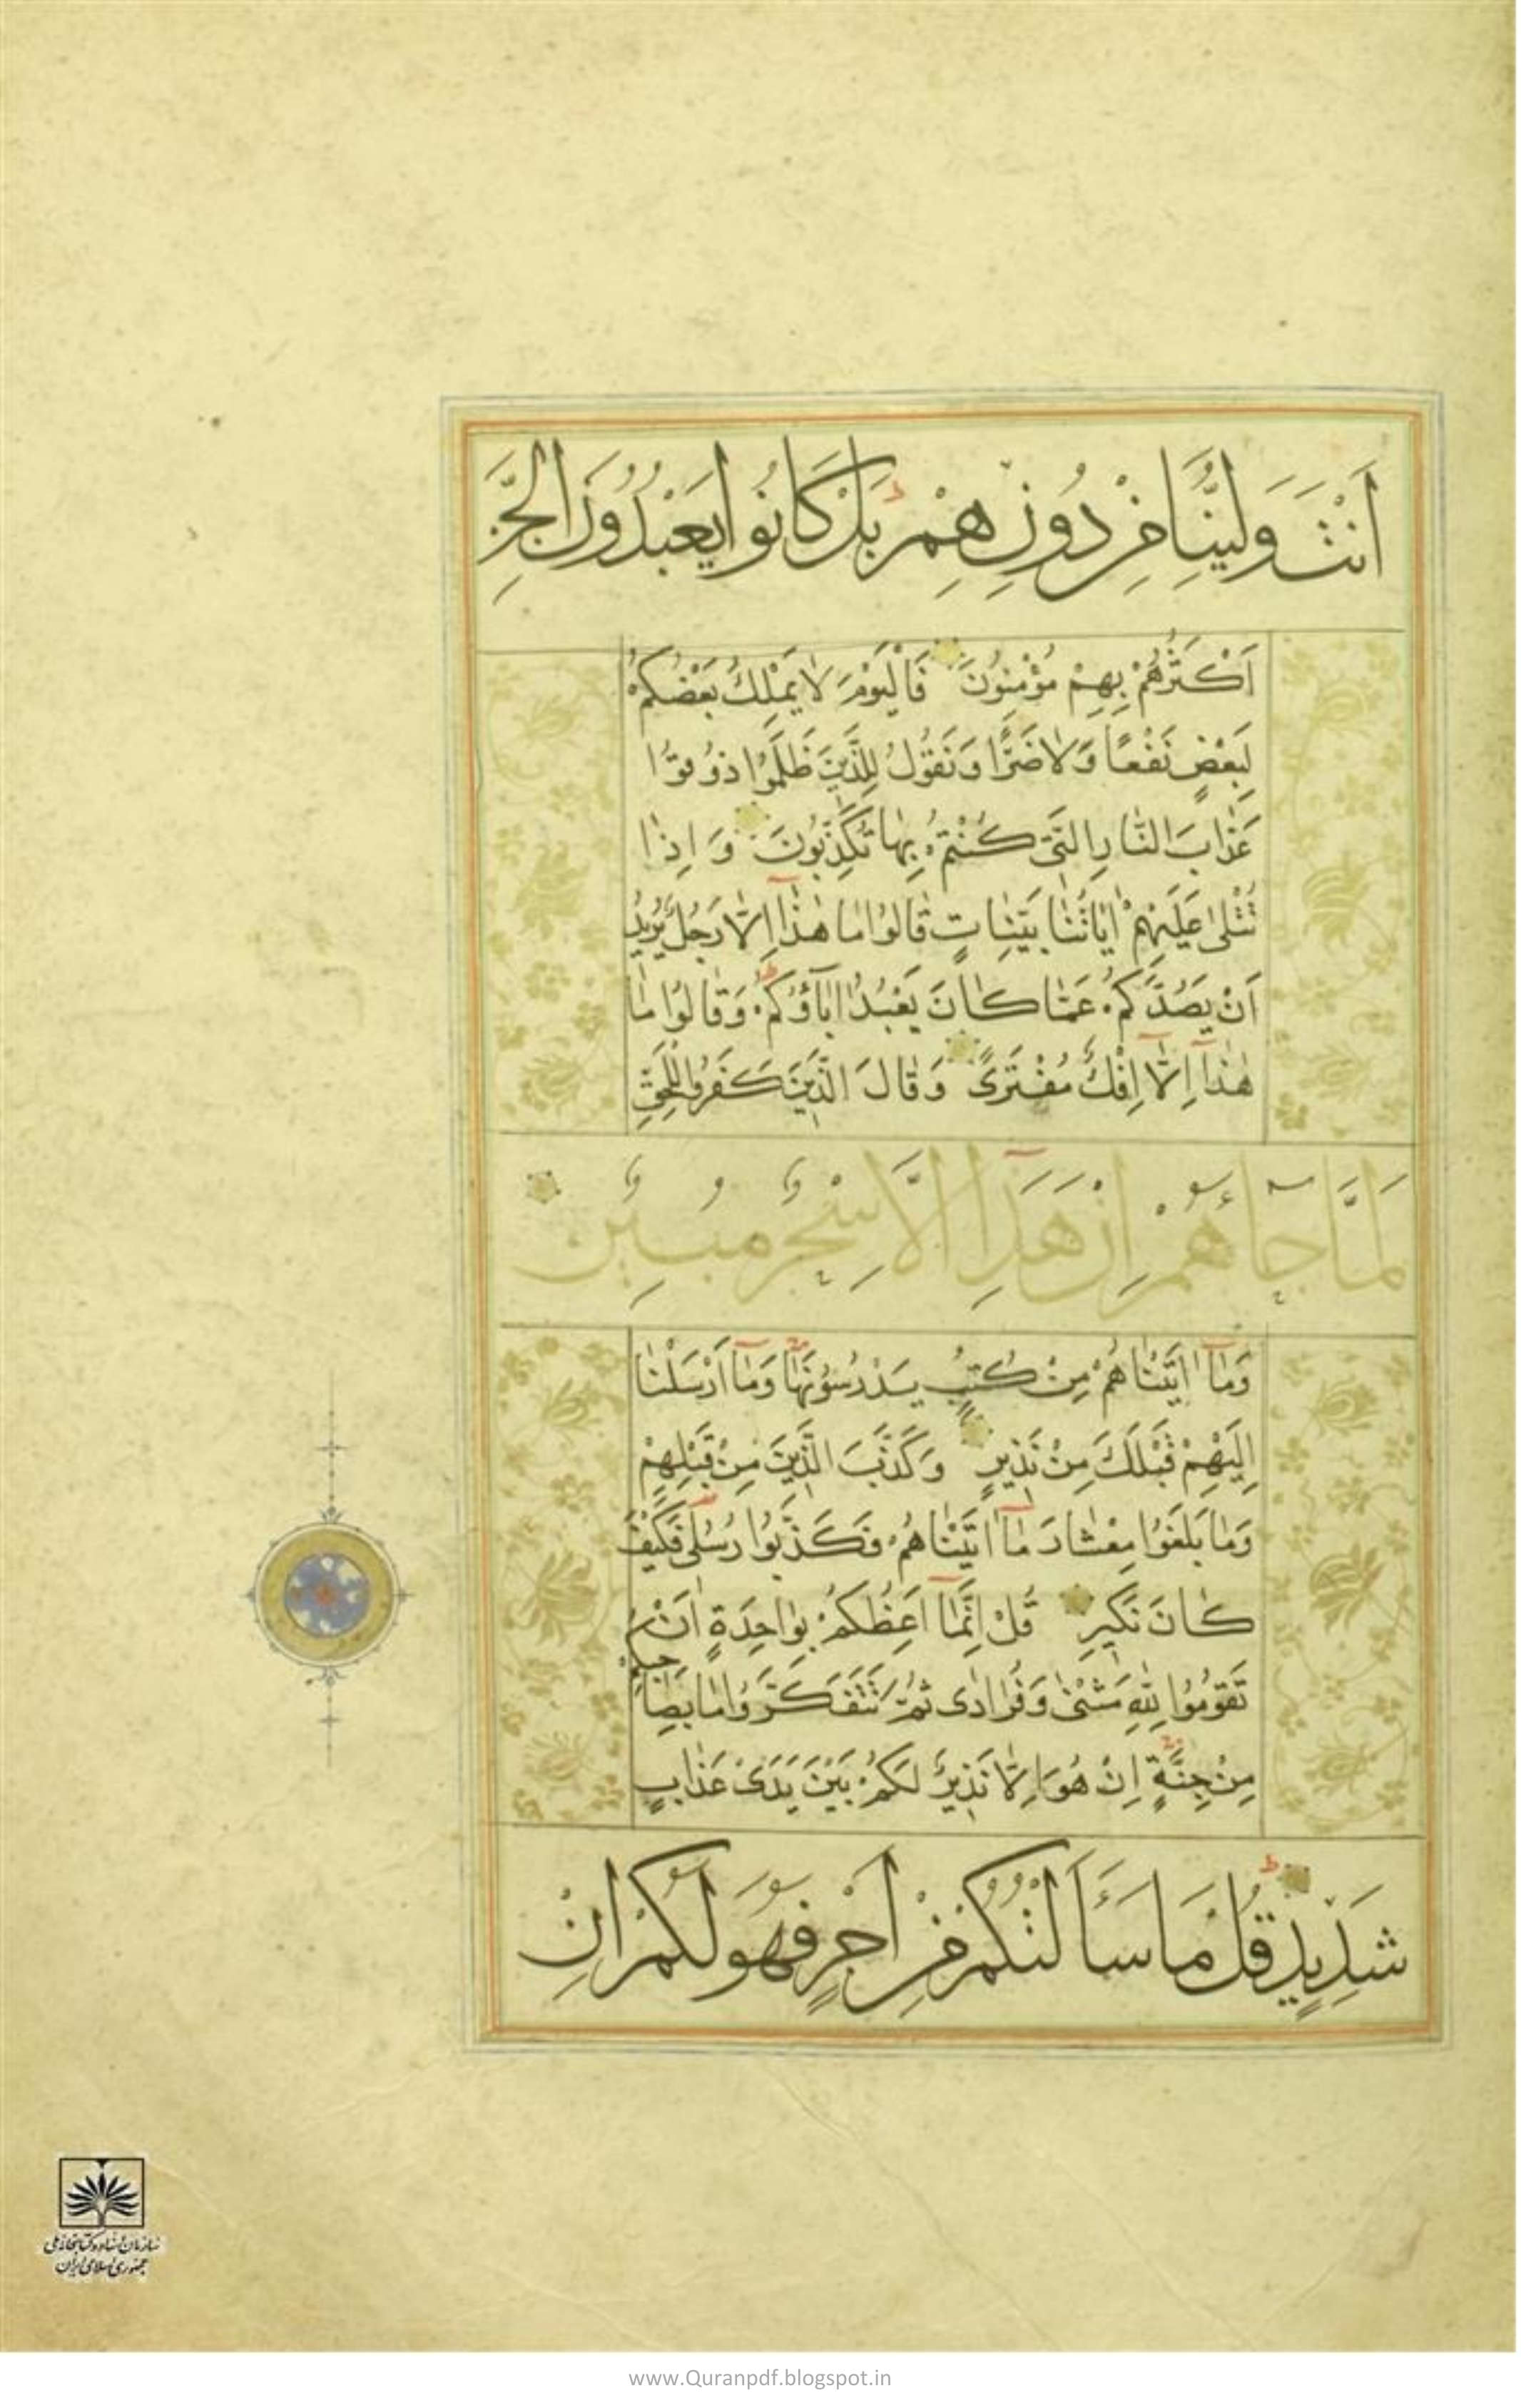 اَنْتَ وَلِيُّنَا مِنْ دُونِهِمْ بَلْ كَانُوا يَعْبُدُونَ الْجِنَّ
اَكْثَرُهُمْ بِهِمْ مُؤْمِنُونَ فَالْيَوْمَ لَا يَمْلِكُ بَعْضُكُمْ
لِبَعْضٍ نَفْعًا وَلَا ضَرًّا وَنَقُولُ لِلَّذِينَ ظَلَمُوا ذُوقُوا
عَذَابَ النَّارِ الَّتِي كُنْتُمْ بِهَا تُكَذِّبُونَ وَاِذَا
تُتْلَى عَلَيْهِمْ اٰيَاتُنَا بَيِّنَاتٍ قَالُوا مَا هٰذَا اِلَّا رَجُلٌ يُرِيدُ
اَنْ يَصُدَّكُمْ عَمَّا كَانَ يَعْبُدُ اٰبَآؤُكُمْ وَقَالُوا مَا
هٰذَآ اِلَّآ اِفْكٌ مُفْتَرًى وَقَالَ الَّذِينَ كَفَرُوا لِلْحَقِّ
لَمَّا جَآءَهُمْ اِنْ هَذَا اِلَّا سِحْرٌ مُبِينٌ
وَمَآ اٰتَيْنَاهُمْ مِنْ كُتُبٍ يَدْرُسُونَهَا وَمَآ اَرْسَلْنَا
اِلَيْهِمْ قَبْلَكَ مِنْ نَذِيرٍ وَكَذَّبَ الَّذِينَ مِنْ قَبْلِهِمْ
وَمَا بَلَغُوا مِعْشَارَ مَآ اٰتَيْنَاهُمْ فَكَذَّبُوا رُسُلِي فَكَيْفَ
كَانَ نَكِيرِ قُلْ اِنَّمَآ اَعِظُكُمْ بِوَاحِدَةٍ اَنْ
تَقُومُوا لِلّٰهِ مَثْنٰى وَفُرَادٰى ثُمَّ تَتَفَكَّرُوا مَا بِصَاحِبِكُمْ
مِنْ جِنَّةٍ اِنْ هُوَ اِلَّا نَذِيرٌ لَكُمْ بَيْنَ يَدَيْ عَذَابٍ
شَدِيدٍ قُلْ مَا سَأَلْتُكُمْ مِنْ اَجْرٍ فَهُوَ لَكُمْ اِنْ
سازمان اسناد و کتابخانه ملی
جمهوری اسلامی ایران
www.Quranpdf.blogspot.in